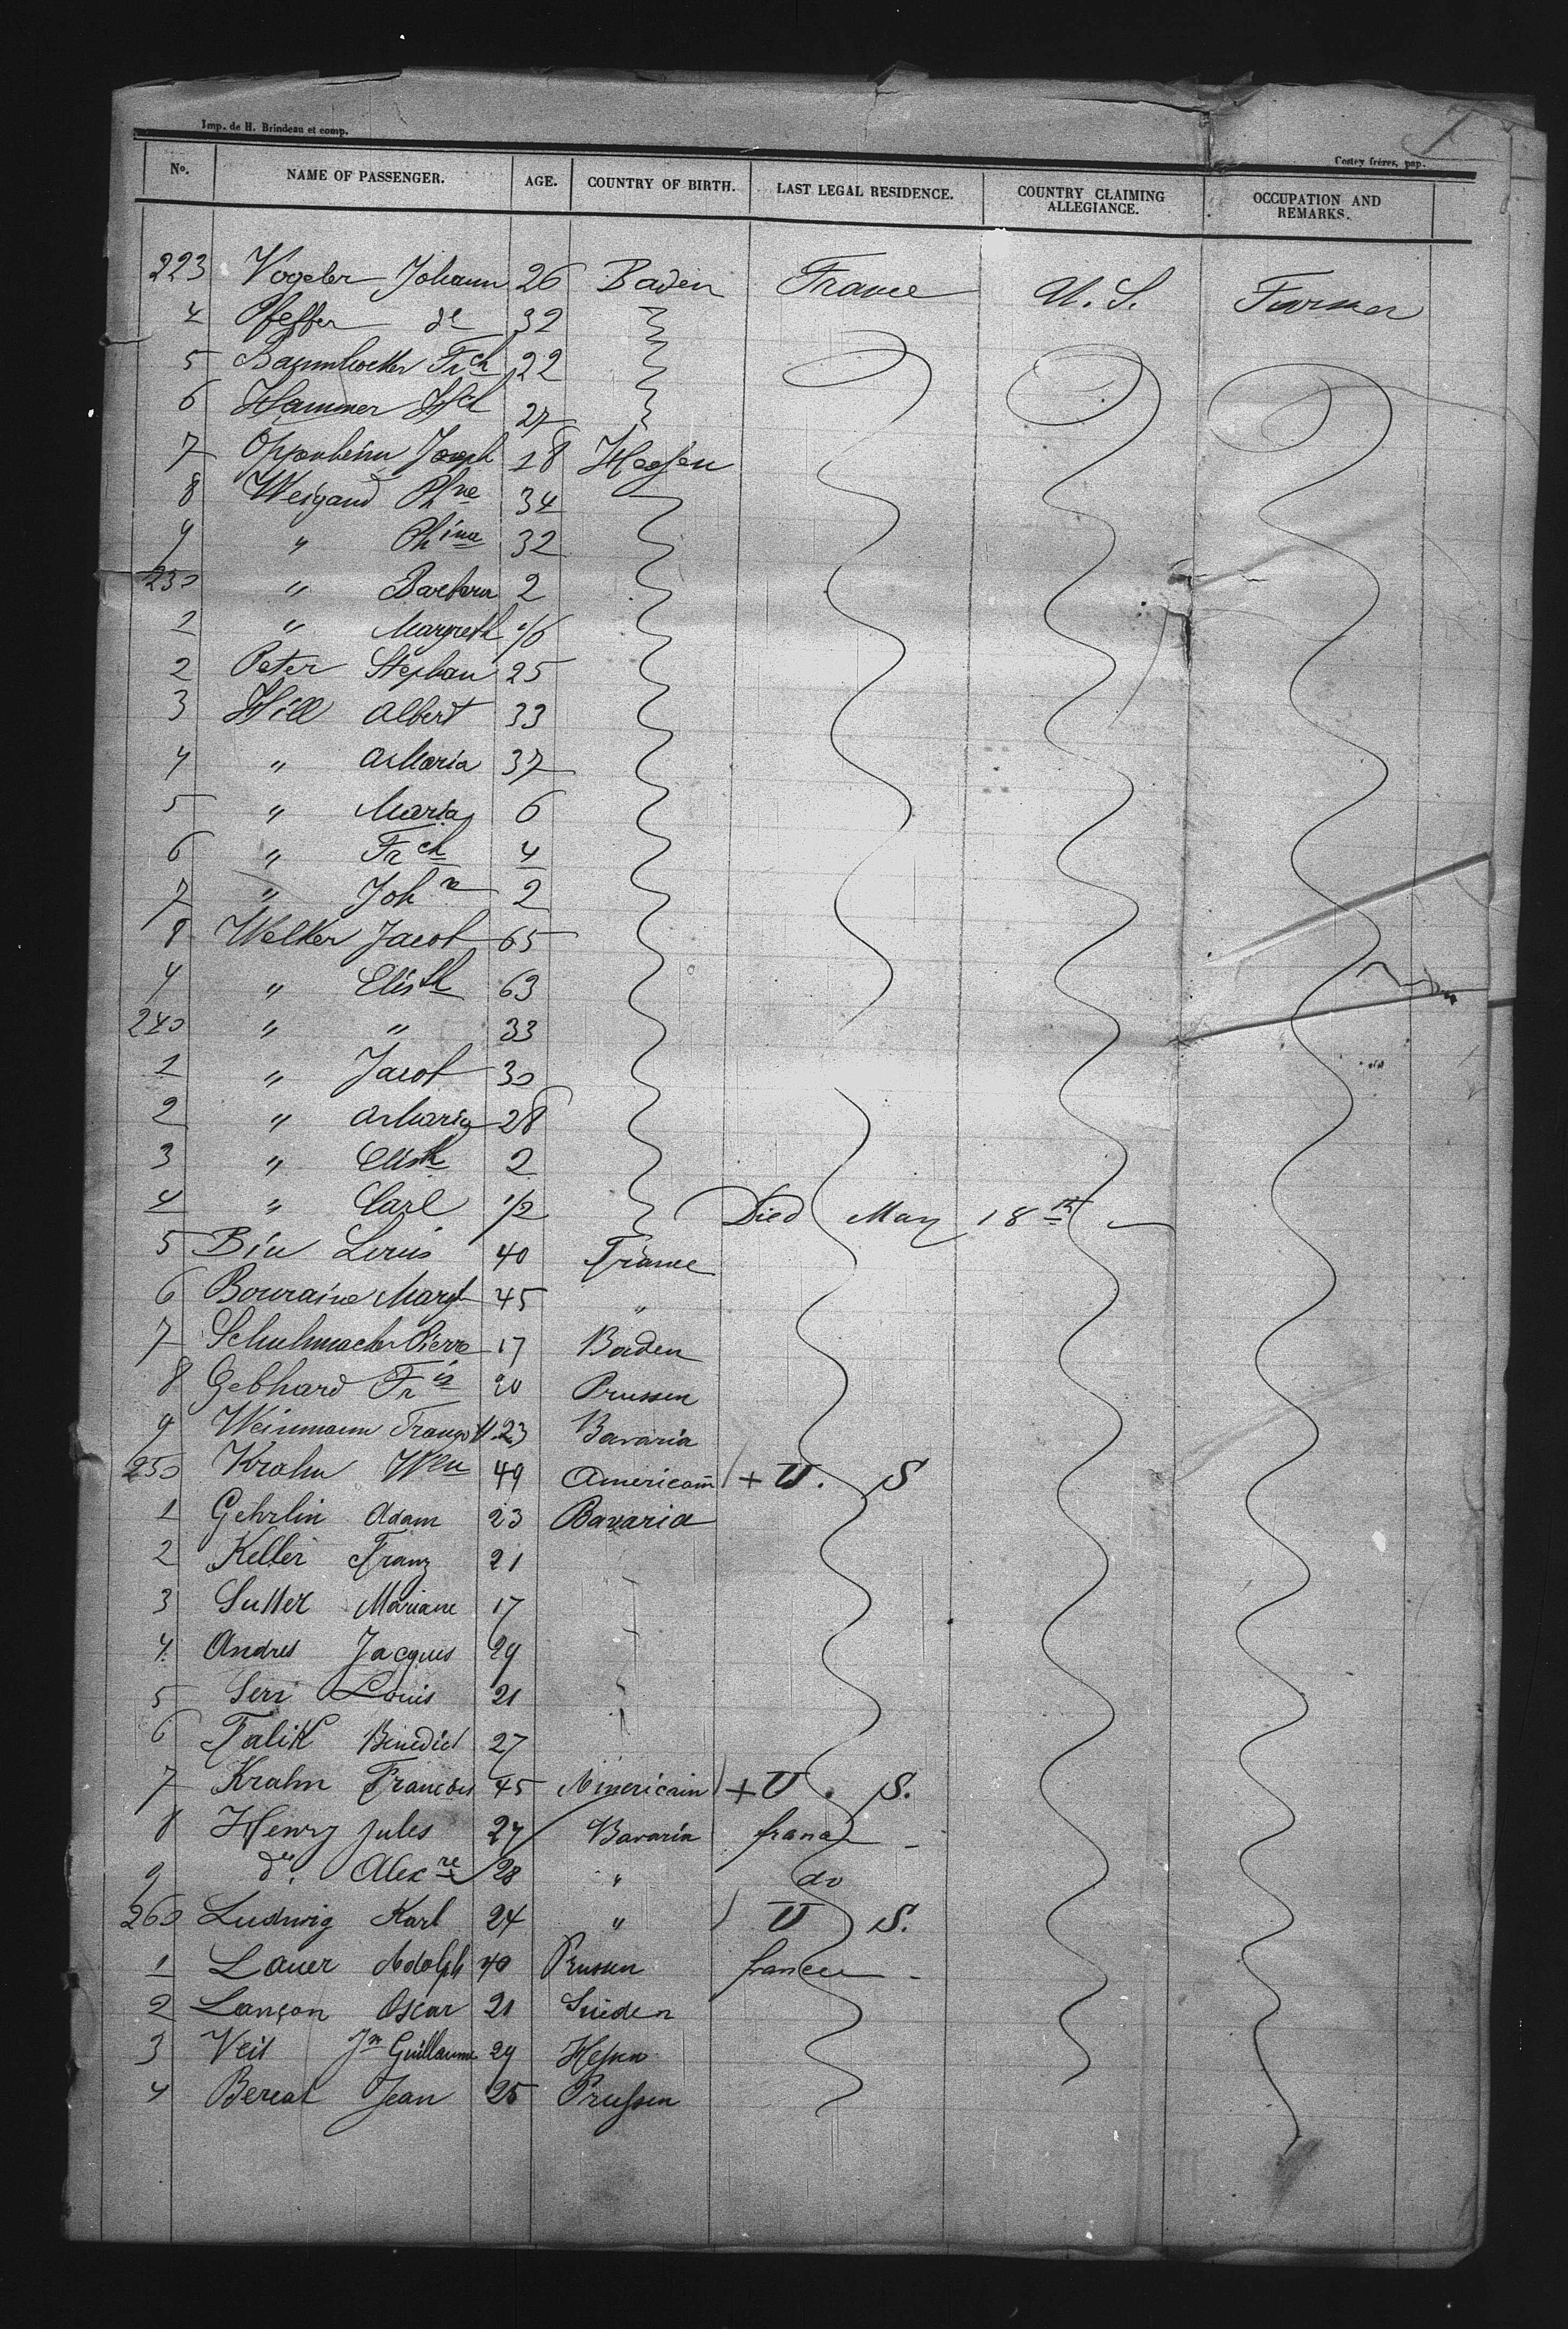 Imp. de H. Brindeau et comp.
Costey frères, pap.
No. NAME OF PASSENGER. AGE. COUNTRY OF BIRTH. LAST LEGAL RESIDENCE. COUNTRY CLAIMING ALLEGIANCE. OCCUPATION AND REMARKS.
223 Vogeler Johann 26 Baden France U. S. Farmer
4 Pfeffer do 32
5 Frch 22
6 Hammer 27
7 Oppenheim Joseph 18 Hessen
8 Weigand Phne 34
9 " Phina 32
230 " Barbara 2
1 " Margreth 1/6
2 Peter Stephan 25
3 Hill Albert 33
4 " AMaria 37
5 " Maria 6
6 " Frch 4
7 " John 2
8 Welker Jacob 65
9 " Elisth 63
240 " " 33
1 " Jacob 30
2 " AMaria 28
3 " Elisth 2
4 " Carl 1/2 Died May 18th
5 Louis 40 France
6 Bouraine 45 "
7 Schuhmacher Pierre 17 Baden
8 Gebhard Fris 20 Prussen
9 Weinmann 23 Bavaria
250 Krahn Wm 49 Americain + U. S
1 Gehrlin Adam 23 Bavaria
2 Keller Franz 21
3 Sutter Mariane 17
4 Andres Jacques 29
5 Serr Louis 21
6 Falik Benedict 27
7 Krahn Francois 45 Americain + U. S.
8 Henry Jules 27 Bavaria
9 do. Alexre 28 " do
260 Ludwig Karl 24 " U S.
1 Lauer Adolph 40 Prussen france
2 Lançon Oscar 21
3 Veit Jn Guillaume 29 Hessen
4 Jean 25 Prussen